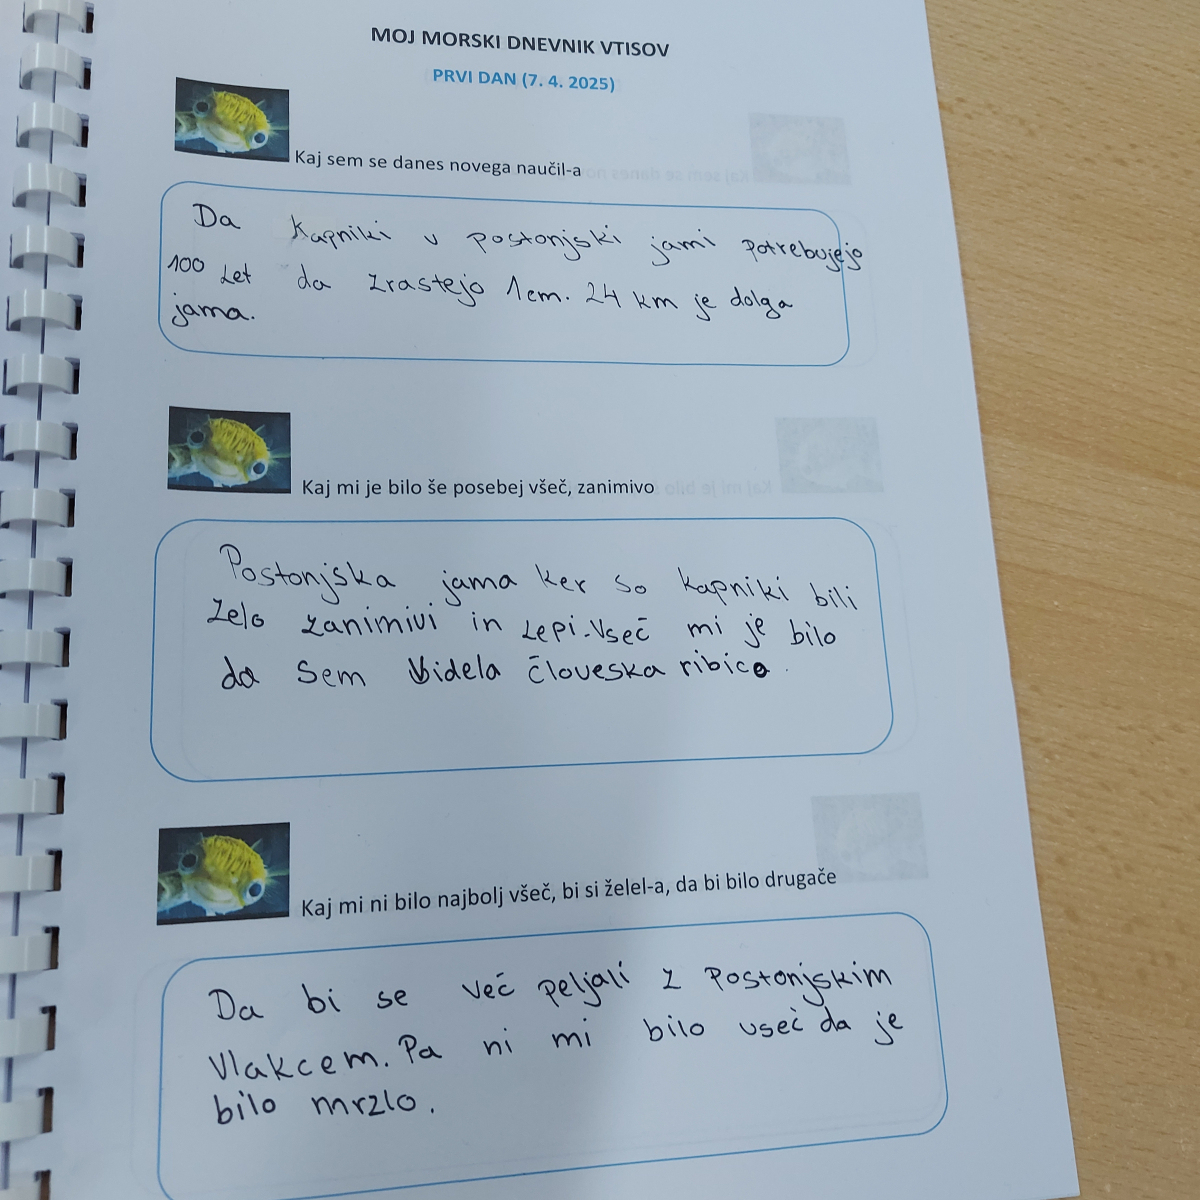 MOJ MORSKI DNEVNIK VTISOV
PRVI DAN (7. 4. 2025)
Kaj sem se danes novega naučil-a
Da kapniki v postonjski jami potrebujejo
100 Let da zrastejo 1cm. 24 km je dolga
jama.
Kaj mi je bilo še posebej všeč, zanimivo
Postonjska jama ker so kapniki bili
zelo zanimivi in Lepi. Vseč mi je bilo
da sem videla človeska ribica.
Kaj mi ni bilo najbolj všeč, bi si želel-a, da bi bilo drugače
Da bi se več peljali z Postonjskim
Vlakcem. Pa ni mi bilo vseč da je
bilo mrzlo.